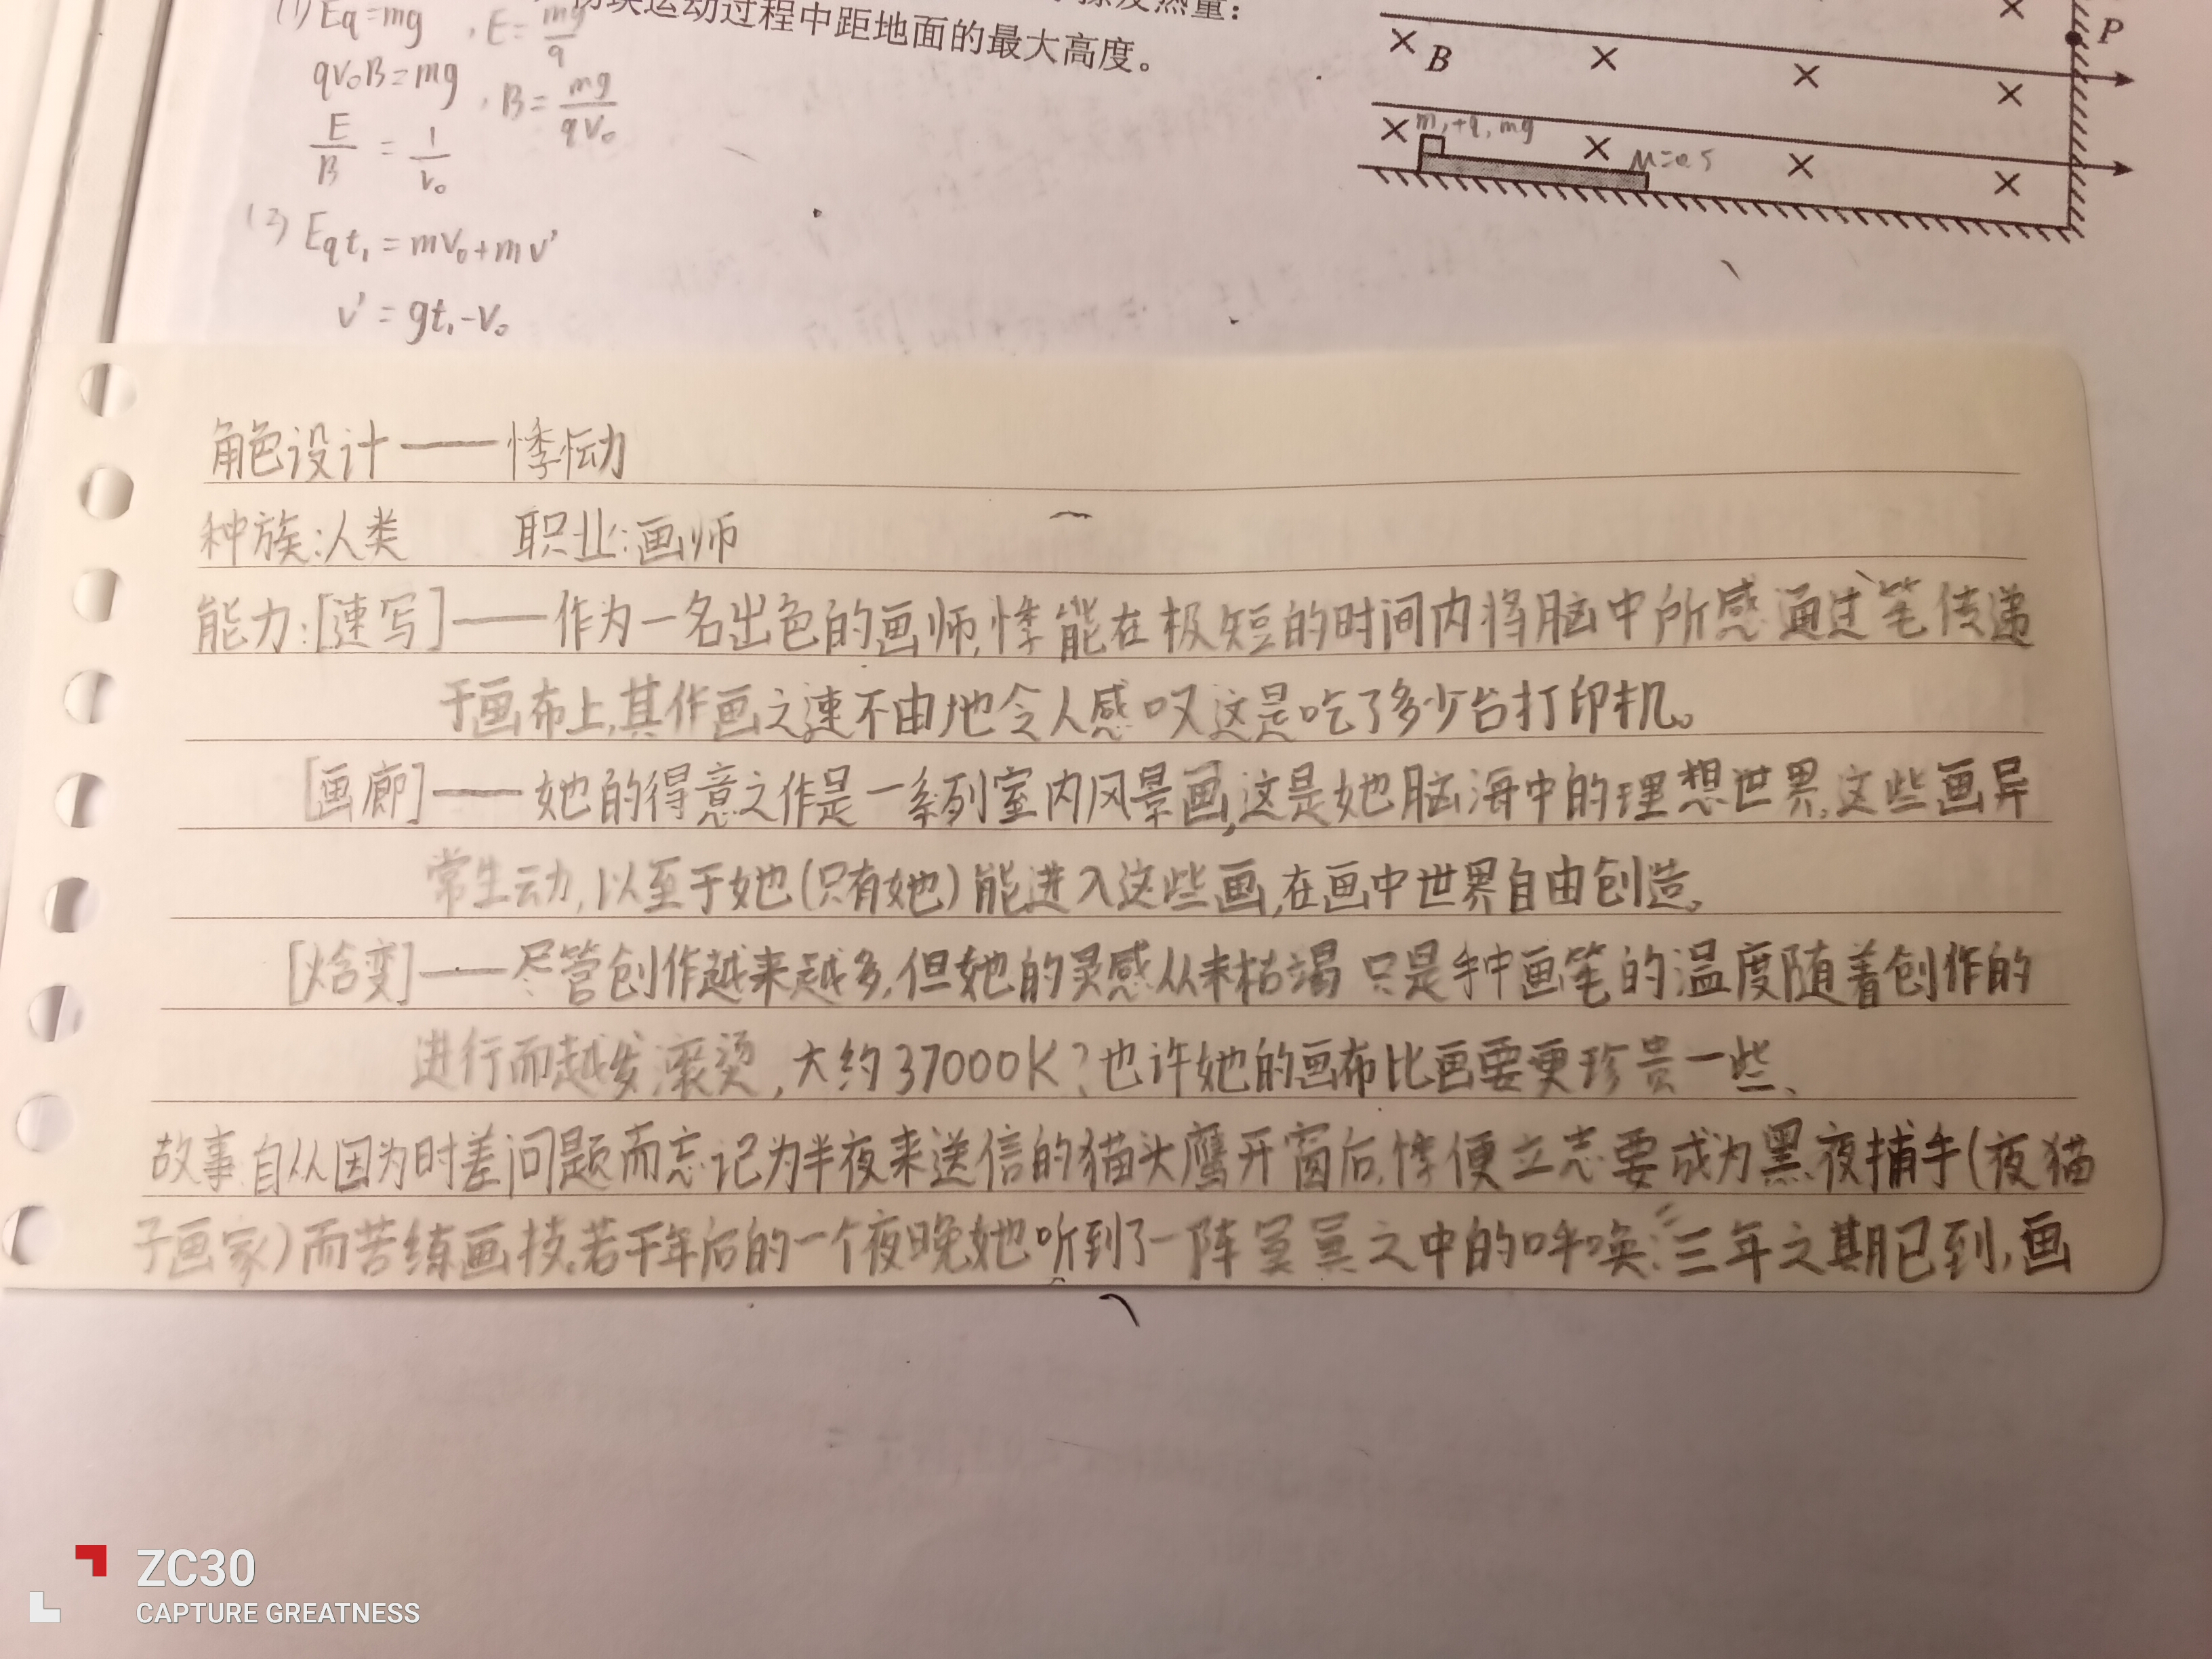 (1) Eq=mg , E=mg/q
物块运动过程中距地面的最大高度。
qv₀B=mg , B=mg/qv₀
E/B = 1/v₀
(2) Eqt₁=mv₀+mv'
v'=gt₁-v₀
P
B
m,+q,mg
μ=0.5
角色设计——悸恸
种族:人类 职业:画师
能力:[速写]——作为一名出色的画师,悸能在极短的时间内将脑中所感通过笔传递
于画布上,其作画之速不由地令人感叹这是吃了多少台打印机。
[画廊]——她的得意之作是一系列室内风景画,这是她脑海中的理想世界,这些画异
常生动,以至于她(只有她)能进入这些画,在画中世界自由创造。
[焓变]——尽管创作越来越多,但她的灵感从未枯竭 只是手中画笔的温度随着创作的
进行而越发滚烫,大约37000K?也许她的画布比画要更珍贵一些、
故事:自从因为时差问题而忘记为半夜来送信的猫头鹰开窗后,悸便立志要成为黑夜捕手(夜猫
子画家)而苦练画技,若干年后的一个夜晚她听到了一阵冥冥之中的呼唤:三年之期已到,画
ZC30
CAPTURE GREATNESS